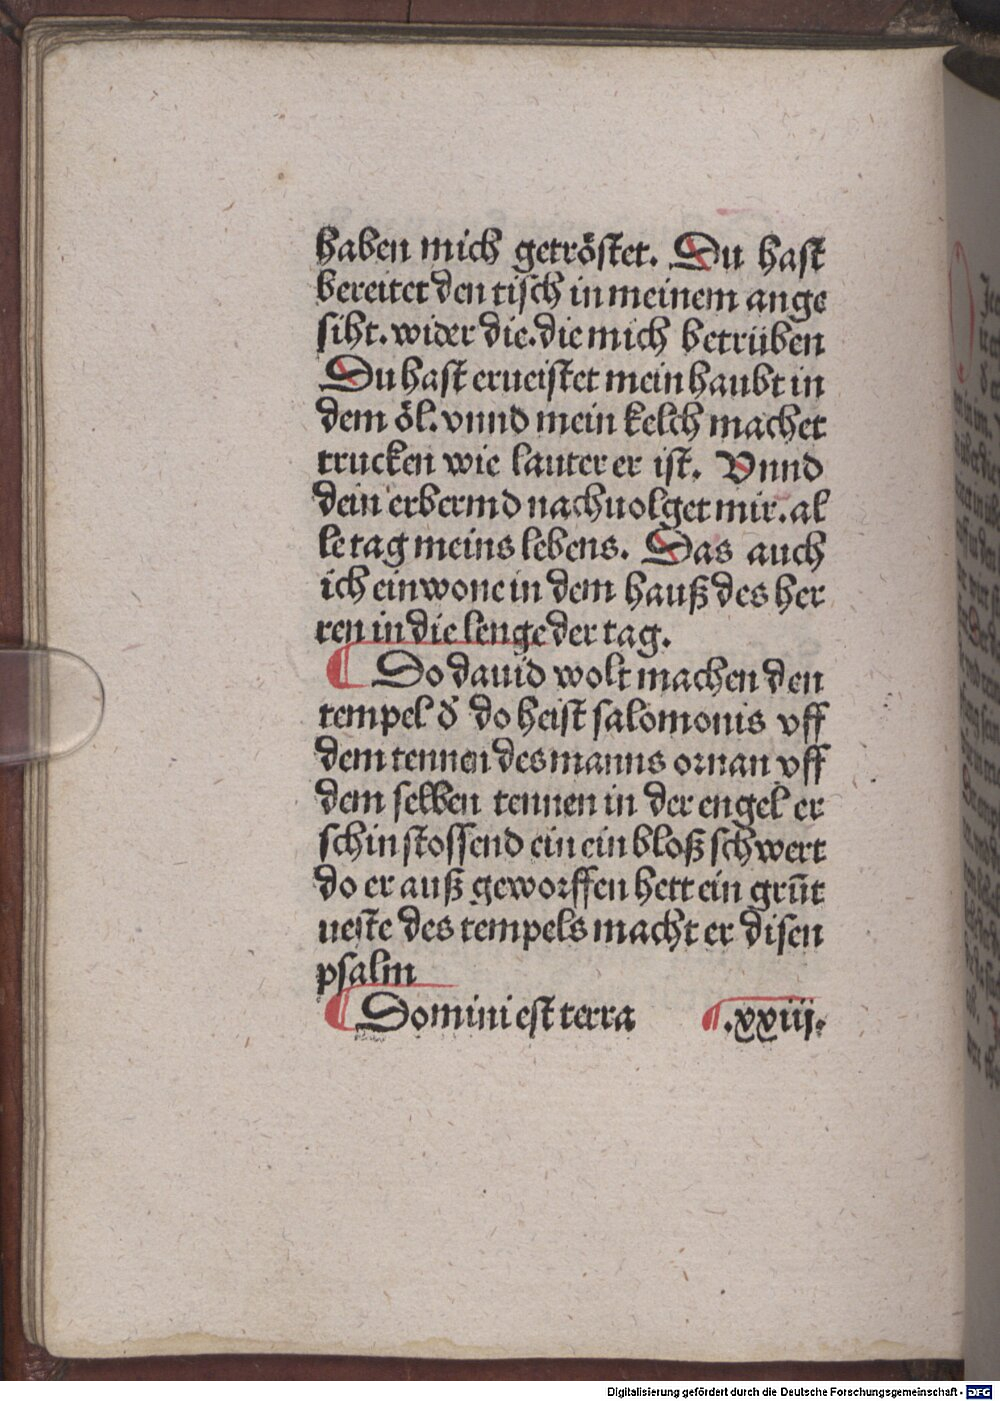 haben mich getröstet. Du hast
bereitet den tisch in meinem ange
siht. wider die. die mich betrüben
Du hast erueistet mein haubt in
dem öl. vnnd mein kelch machet
trucken wie lauter er ist. Vnnd
dein erbermd nachuolget mir. al
le tag meins lebens. Das auch
ich einwone in dem hauß des her
ren in die lenge der tag.
¶ Do dauid wolt machen den
tempel d̕ do heist salomonis vff
dem tennen des manns ornan vff
dem selben tennen in der engel er
schin stossend ein ein bloß schwert
do er auß geworffen hett ein grūt
ueste des tempels macht er disen
psalm
¶ Domini est terra ¶ .xxiij.
Digitalisierung gefördert durch die Deutsche Forschungsgemeinschaft - DFG